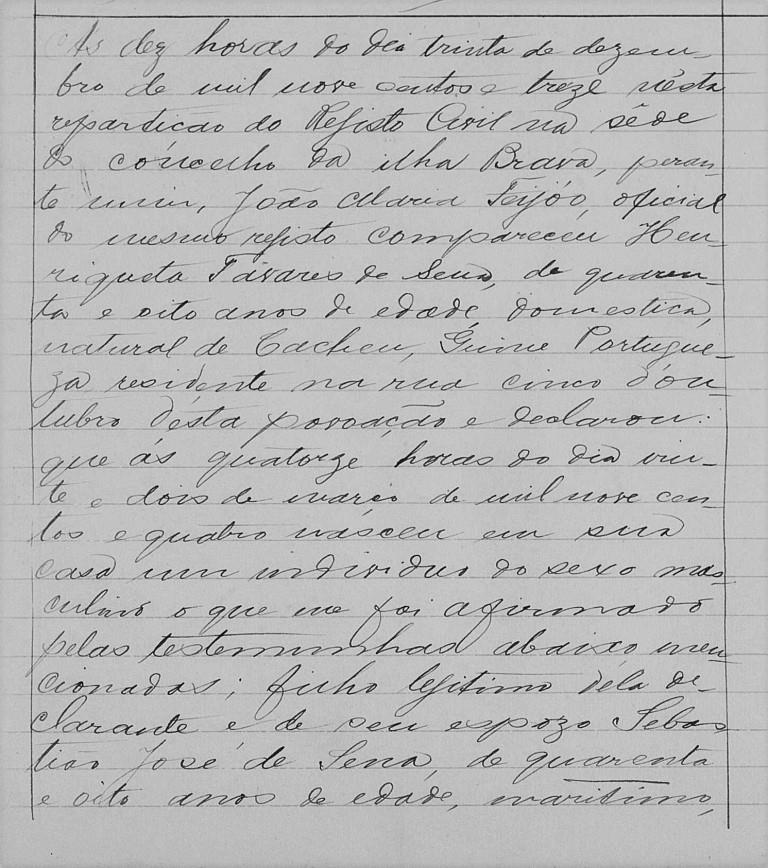 Ás dez horas do dia trinta de dezem-
bro de mil nove centos e treze nésta
repartição do Registo Civil na séde
do concelho da ilha Brava, peran-
te mim, João Maria Feijóo, oficial
do mesmo registo compareceu Hen-
riqueta Tavares de Sena, de quaren-
ta e oito anos de edade, domestica,
natural de Cacheu, Guine Portugue-
za residente na rua cinco d'ou-
tubro désta povoação e declarou:
que ás quatorze horas do dia vin-
te e dois de março de mil nove cen-
tos e quatro nasceu em sua
casa um individuo do sexo mas-
culino o que me foi afirmado
pelas testemunhas abaixo men-
cionadas; filho legitimo déla de-
clarante e de seu espozo Sebas-
tião José de Sena, de quarenta
e oito anos de edade, maritimo,